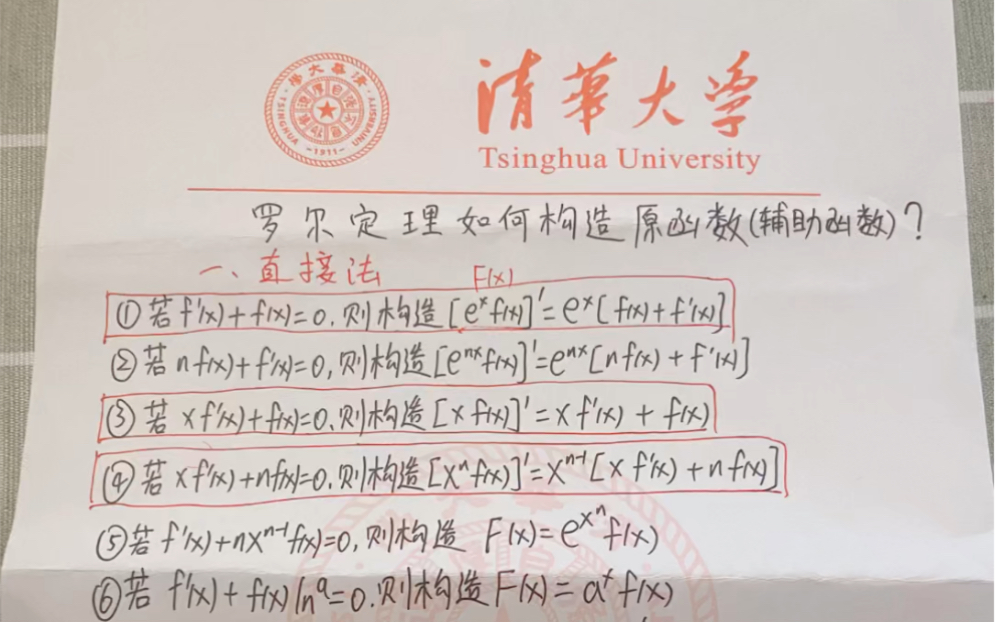 清華大学
Tsinghua University
TSINGHUA UNIVERSITY
-1911-
罗尔定理如何构造原函数(辅助函数)?
一、直接法 F(x)
①若f'(x)+f(x)=0,则构造[eˣf(x)]'=eˣ[f(x)+f'(x)]
②若nf(x)+f'(x)=0,则构造[eⁿˣf(x)]'=eⁿˣ[nf(x)+f'(x)]
③若xf'(x)+f(x)=0,则构造[xf(x)]'=xf'(x)+f(x)
④若xf'(x)+nf(x)=0,则构造[xⁿf(x)]'=xⁿ⁻¹[xf'(x)+nf(x)]
⑤若f'(x)+nxⁿ⁻¹f(x)=0,则构造 F(x)=e^{xⁿ}f(x)
⑥若f'(x)+f(x)lnᵃ=0.则构造F(x)=aˣf(x)